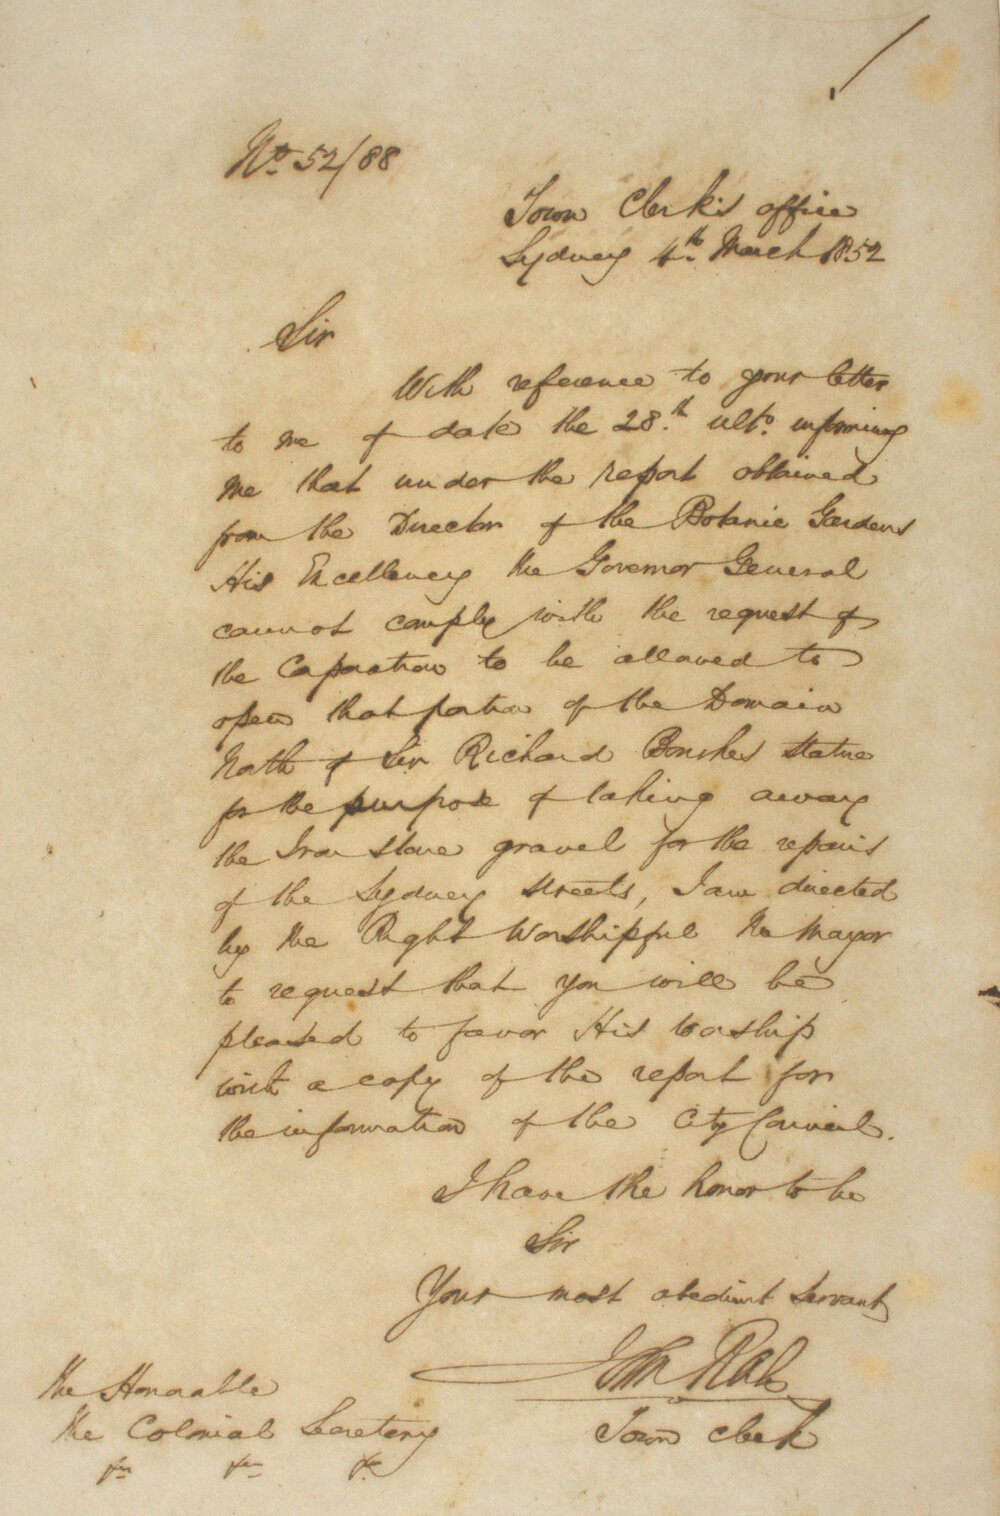 No. 52/88
Town Clerk's office
Sydney 4th March 1852
Sir
With reference to your letter
to me of date the 28th ulto. informing
me that under the report obtained
from the Director of the Botanic Gardens
His Excellency the Governor General
cannot comply with the request of
the Corporation to be allowed to
open that portion of the Domain
North of Sir Richard Bourkes statue
for the purpose of taking away
the Iron stone gravel for the repairs
of the Sydney streets, I am directed
by the Right Worshipful the Mayor
to request that you will be
pleased to favor His Worship
with a copy of the report for
the information of the City Council.
I have the honor to be
Sir
Your most obedient Servant
John Rae
Town Clerk
The Honorable
The Colonial Secretary
&c &c &c